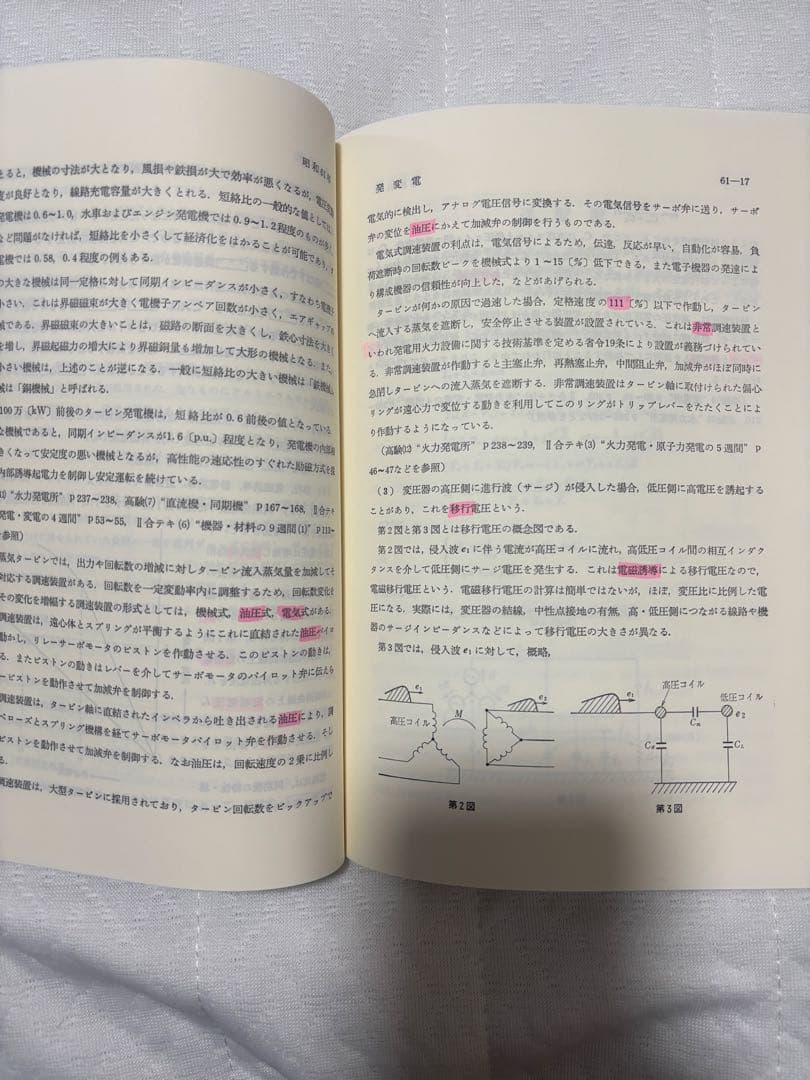 昭和61年
えると，機械の寸法が大となり，風損や鉄損が大で効率が悪くなるが，電圧
度が良好となり，線路充電容量が大きくとれる．短絡比の一般的な値としては，
発電機は0.6~1.0，水車およびエンジン発電機では0.9~1.2程度のものが多
など問題がなければ，短絡比を小さくして経済化をはかることが可能であり，
電機では0.58，0.4程度の例もある．
の大きな機械は同一定格に対して同期インピーダンスが小さく，すなわち電機子
小さい．これは界磁磁束が大きく電機子アンペア回数が小さく，エアギャップ
械である．界磁磁束の大きいことは，磁路の断面を大きくし，鉄心寸法を大き
を増し，界磁起磁力の増大により界磁銅量も増加して大形の機械となる．また，
小さい機械は，上述のことが逆になる．一般に短絡比の大きい機械は「鉄機械」
械は「銅機械」と呼ばれる．
100万〔kW〕前後のタービン発電機は，短絡比が0.6前後の値となっている
な機械であると，同期インピーダンスが1.6〔p.u.〕程度となり，発電機の内部
きくなって安定度の悪い機械となるが，高性能の速応性のすぐれた励磁方式を
内部誘導起電力を制御し安定運転を続けている．
“水力発電所” p 237~238，高験(7) “直流機・同期機” p 167~168，Ⅱ合テキ
発電・変電の4週間” p 53~55，Ⅱ合テキ(6) “機器・材料の9週間(1)” p 113~
参照）
蒸気タービンでは，出力や回転数の増減に対しタービン流入蒸気量を加減して
対応する調速装置がある．回転数を一定変動率内に調整するため，回転数変化を
その変化を増幅する調速装置の形式としては，機械式，油圧式，電気式がある．
調速装置は，遠心体とスプリングが平衡するようにこれに直結された油圧パイロ
動かし，リレーサーボモータのピストンを作動させる．このピストンの動きは，
る．またピストンの動きはレバーを介してサーボモータのパイロット弁に伝えら
ピストンを動作させて加減弁を制御する．
調速装置は，タービン軸に直結されたインペラから吐き出される油圧により，調
ベローズとスプリング機構を経てサーボモータパイロット弁を作動させる．そし
ピストンを動作させて加減弁を制御する．なお油圧は，回転速度の2乗に比例し
る．
調速装置は，大型タービンに採用されており，タービン回転数をピックアップで
発変電 61—17
電気的に検出し，アナログ電圧信号に変換する．その電気信号をサーボ弁に送り，サーボ
弁の変位を油圧にかえて加減弁の制御を行うものである．
電気式調速装置の利点は，電気信号によるため，伝達，反応が早い，自動化が容易，負
荷遮断時の回転数ピークを機械式より1~15〔%〕低下できる，また電子機器の発達によ
り構成機器の信頼性が向上した，などがあげられる．
タービンが何かの原因で過速した場合，定格速度の111〔%〕以下で作動し，タービン
へ流入する蒸気を遮断し，安全停止させる装置が設置されている．これは非常調速装置と
いわれ発電用火力設備に関する技術基準を定める省令19条により設置が義務づけられてい
る．非常調速装置が作動すると主塞止弁，再熱塞止弁，中間阻止弁，加減弁がほぼ同時に
急閉しタービンへの流入蒸気を遮断する．非常調速装置はタービン軸に取付けられた偏心
リングが遠心力で変位する動きを利用してこのリングがトリップレバーをたたくことによ
り作動するようになっている．
（高験⑿ “火力発電所” p 238~239，Ⅱ合テキ(3) “火力発電・原子力発電の5週間” p
46~47などを参照）
（3） 変圧器の高圧側に進行波（サージ）が侵入した場合，低圧側に高電圧を誘起する
ことがあり，これを移行電圧という．
第2図と第3図とは移行電圧の概念図である．
第2図では，侵入波e₁に伴う電流が高圧コイルに流れ，高低圧コイル間の相互インダク
タンスを介して低圧側にサージ電圧を発生する．これは電磁誘導による移行電圧なので，
電磁移行電圧という．電磁移行電圧の計算は簡単ではないが，ほぼ，変圧比に比例した電
圧になる．実際には，変圧器の結線，中性点接地の有無，高・低圧側につながる線路や機
器のサージインピーダンスなどによって移行電圧の大きさが異なる．
第3図では，侵入波e₁に対して，概略，
e₁
高圧コイル
M
e₂
第2図
e₁
高圧コイル
低圧コイル
e₂
第3図